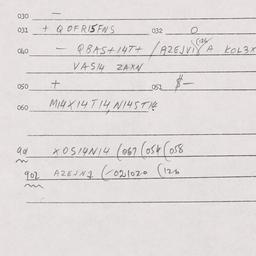 030 —
031 + QOFR15FNS 032 O
040 — QBAS+14T+ /AZEJVI (126 A KOL3X
VAS14 ZAXN
050 + 052 $—
M14X14T14,N14ST14
060
9d XOS14N14 (067 (054 (058
902 AZEJNJ (-021020 (126